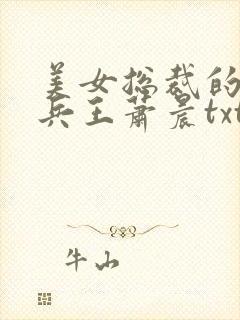 美女总裁的
兵王萧晨txt
牛山